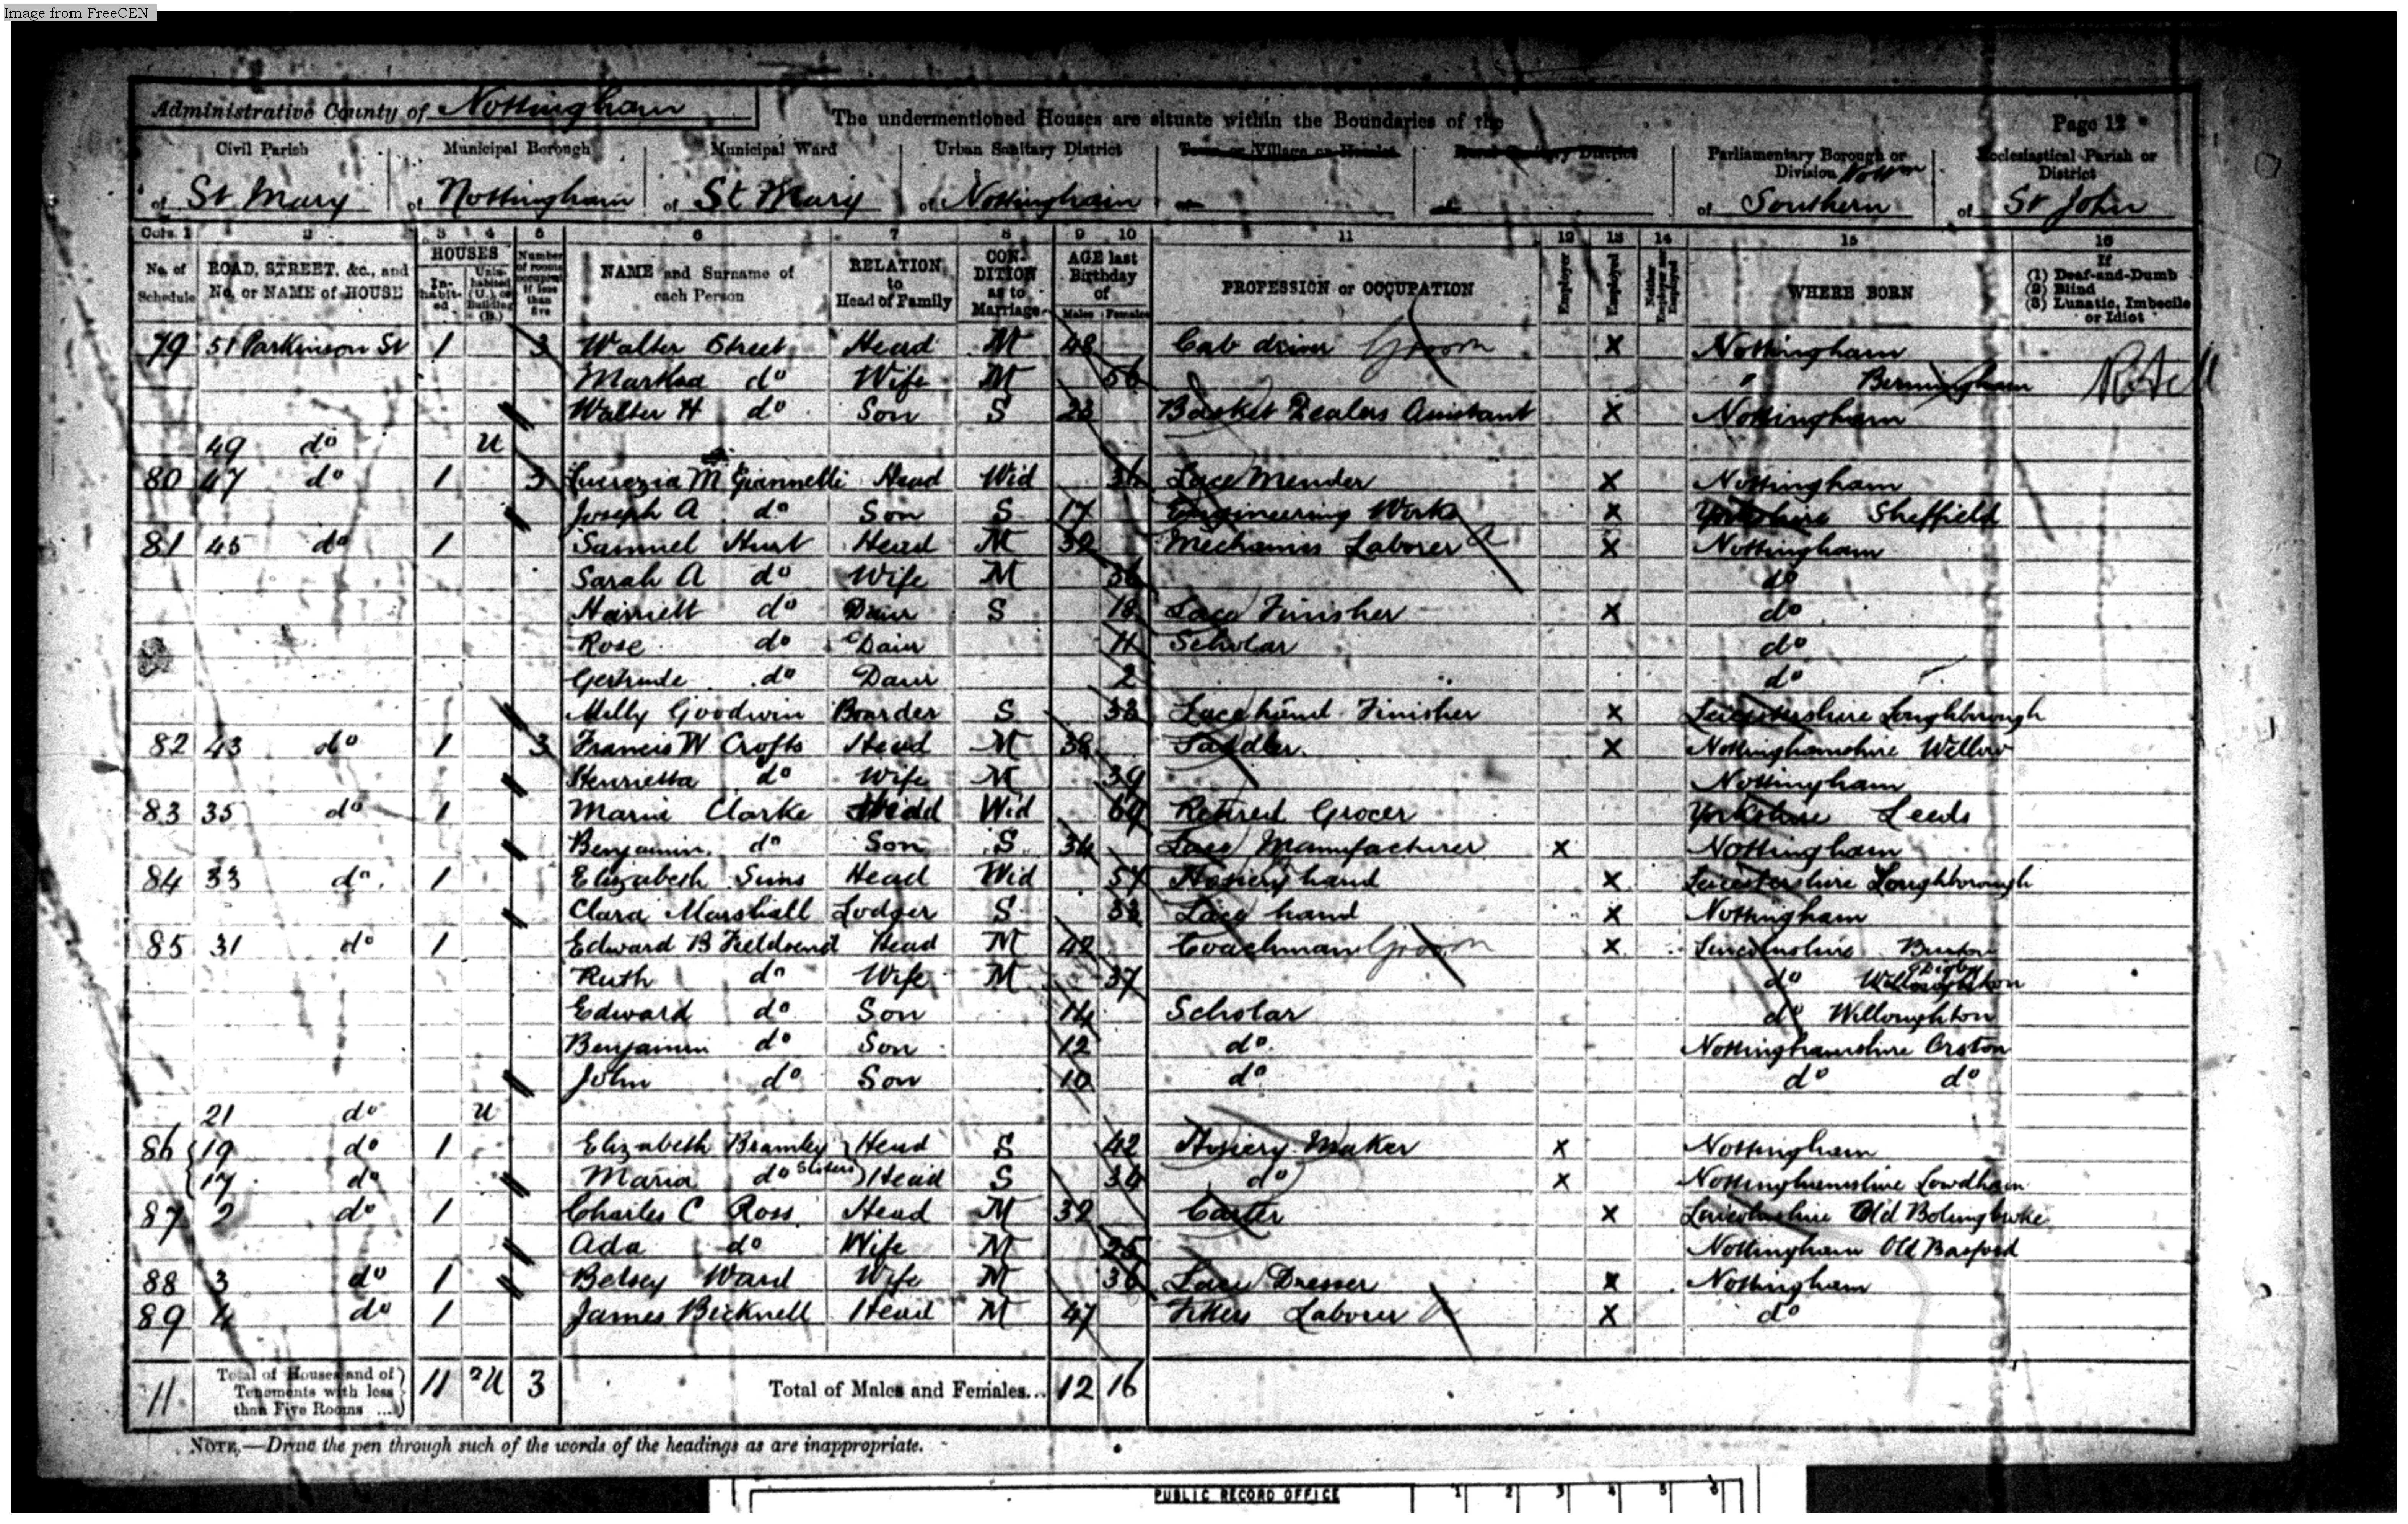 Image from FreeCEN
Administrative County of Nottingham
The undermentioned Houses are situate within the Boundaries of the
Page 12
Civil Parish Municipal Borough Municipal Ward Urban Sanitary District Town or Village or Hamlet Rural Sanitary District Parliamentary Borough or Division Ecclesiastical Parish or District
of St Mary of Nottingham of St Mary of Nottingham of of of Nottm Southern of St John
Cols. 1 2 3 4 5 6 7 8 9 10 11 12 13 14 15 16
No. of Schedule ROAD, STREET, &c., and No. or NAME of HOUSE HOUSES Inhabited Uninhabited (U.) or Building (B.) Number of rooms occupied if less than five NAME and Surname of each Person RELATION to Head of Family CONDITION as to Marriage AGE last Birthday of Males Females PROFESSION or OCCUPATION Employer Employed Neither Employer nor Employed WHERE BORN If (1) Deaf-and-Dumb (2) Blind (3) Lunatic, Imbecile or Idiot
79 51 Parkinson St 1 3 Walter Street Head M 48 Cab driver Groom x Nottingham
do Wife M 56 " Birmingham
Walter H do Son S 23 Basket Dealers Assistant x Nottingham
49 do U
80 47 do 1 3 Lucrezia M Giannelli Head Wid 36 Lace Mender x Nottingham
Joseph A do Son S 17 Engineering Works x Yorkshire Sheffield
81 45 do 1 Samuel Hurt Head M 39 Mechanics Laborer x Nottingham
Sarah A do Wife M 36 do
Harriett do Daur S 18 Lace Finisher x do
Rose do Daur 11 Scholar do
Gertrude do Daur 2 do
Milly Goodwin Boarder S 33 Lace hand Finisher x Leicestershire Loughborough
82 43 do 1 3 Francis W Crofts Head M 38 Saddler x Nottinghamshire Wellow
Henrietta do Wife M 39 Nottingham
83 35 do 1 Maria Clarke Head Wid 69 Retired Grocer Yorkshire Leeds
Benjamin do Son S 34 Lace Manufacturer x Nottingham
84 33 do 1 Elizabeth Sims Head Wid 57 Hosiery hand x Leicestershire Loughborough
Clara Marshall Lodger S 33 Lace hand x Nottingham
85 31 do 1 Edward B Fieldsend Head M 42 Coachman Groom x Lincolnshire Burton
Ruth do Wife M 37 do Digby
Edward do Son 14 Scholar do Willoughton
Benjamin do Son 12 do Nottinghamshire Orston
John do Son 10 do do do
21 do U
86 19 do 1 Elizabeth Bramley Head S 42 Hosiery Maker x Nottingham
17 do Maria do Sisters Head S 34 do x Nottinghamshire Lowdham
87 2 do 1 Charles C Ross Head M 32 Carter x Lincolnshire Old Bolingbroke
Ada do Wife M 25 Nottingham Old Basford
88 3 do 1 Betsey Ward Wife M 36 Lace Dresser x Nottingham
89 4 do 1 James Bicknell Head M 47 Fitters Laborer x do
11 Total of Houses and of Tenements with less than Five Rooms 11 2U 3 Total of Males and Females... 12 16
NOTE.—Draw the pen through such of the words of the headings as are inappropriate.
PUBLIC RECORD OFFICE 1 2 3 4 5 6